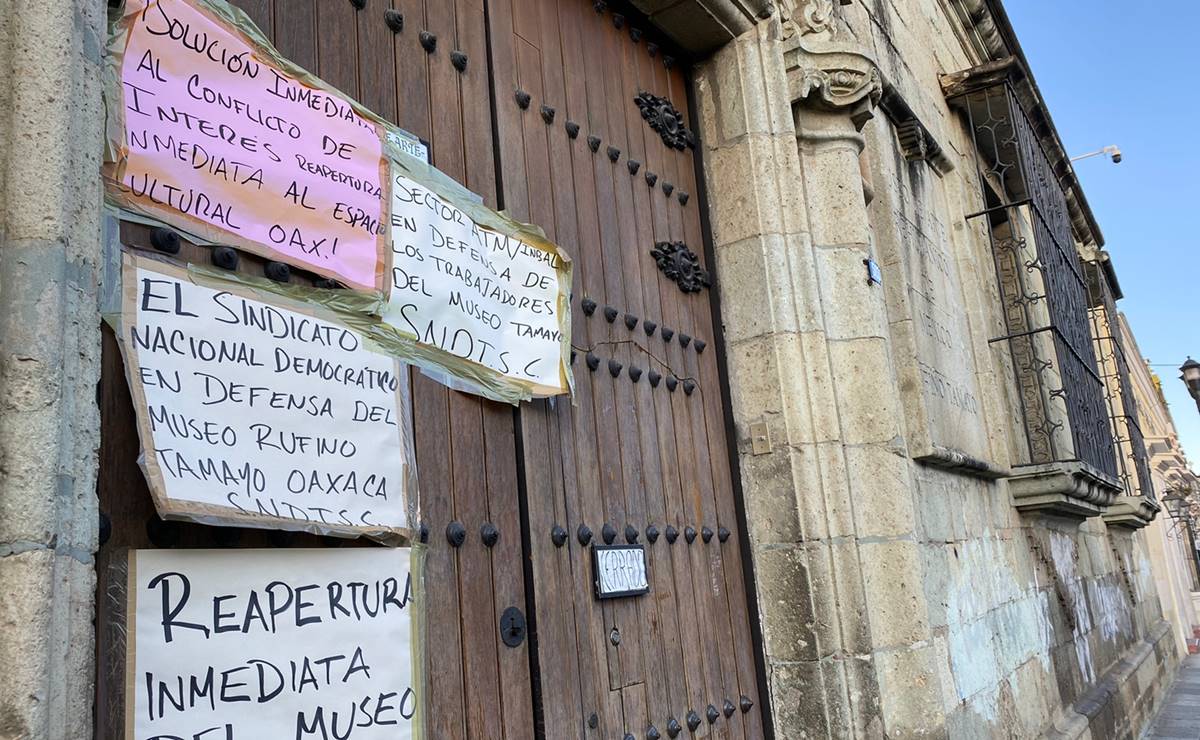 ¡SOLUCIÓN INMEDIATA
AL CONFLICTO DE
INTERÉS REAPERTURA
INMEDIATA AL ESPACIO
CULTURAL OAX!
SECTOR ATM/INBAL
EN DEFENSA DE
LOS TRABAJADORES
DEL MUSEO TAMAYO
S.N.D.T.S.C.
EL SINDICATO
NACIONAL DEMOCRÁTICO
EN DEFENSA DEL
MUSEO RUFINO
TAMAYO OAXACA
SNDTSC
REAPERTURA
INMEDIATA
DEL MUSEO
CERRADO